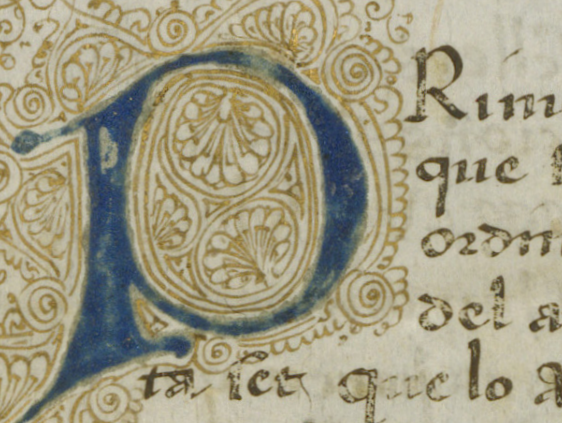 PRim
que
ordin
del a
ta ſet que lo a